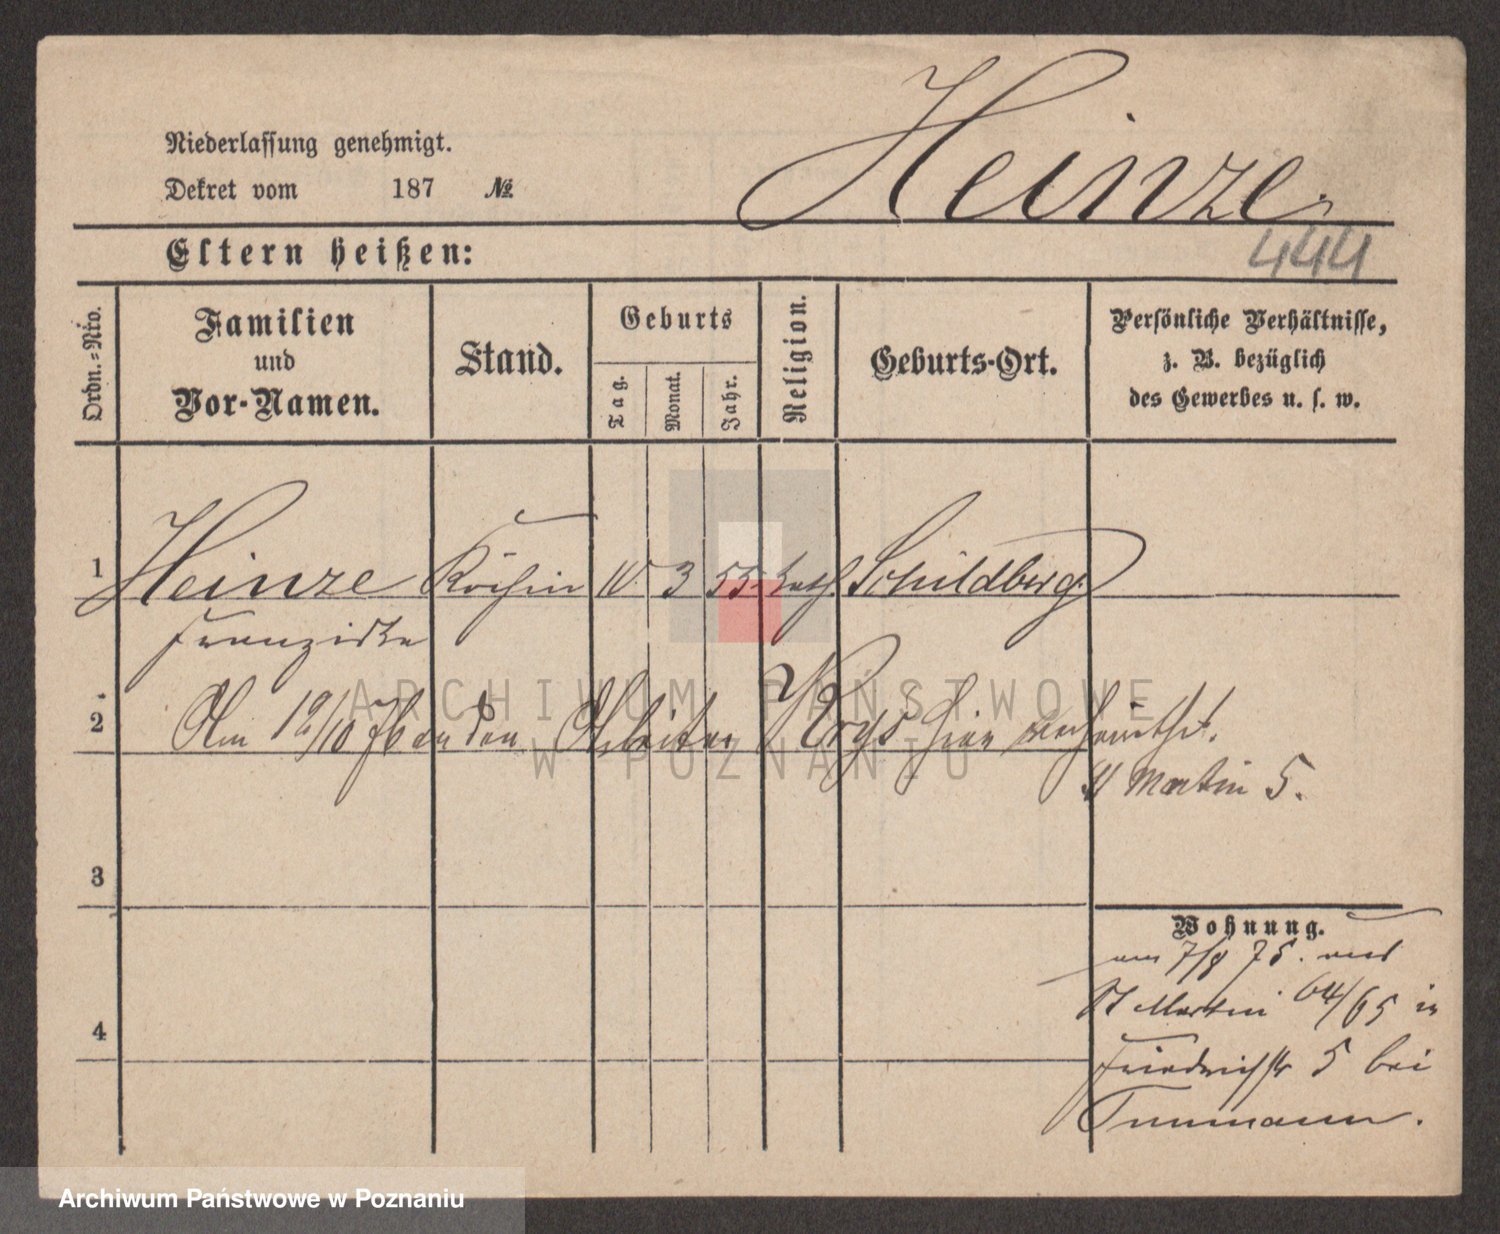 Heinze.
Niederlassung genehmigt.
Dekret vom 187 №
444
Eltern heißen:
Ordn.=Nro.
Familien
und
Vor-Namen.
Stand.
Geburts
Tag.
Monat.
Jahr.
Religion.
Geburts-Ort.
Persönliche Verhältnisse,
z. B. bezüglich
des Gewerbes u. s. w.
1 Heinze Köchin 10. 3 55. kath. Schildberg.
Franziska
2 Am 19/10 76 an den Arbeiter Krys hier verheirathet.
St Martin 5.
3
Wohnung.
am 7/8 75. von
St Martin 64/65 in
4
Friedrichstr 5 bei
ARCHIWUM PAŃSTWOWE
W POZNANIU
Archiwum Państwowe w Poznaniu